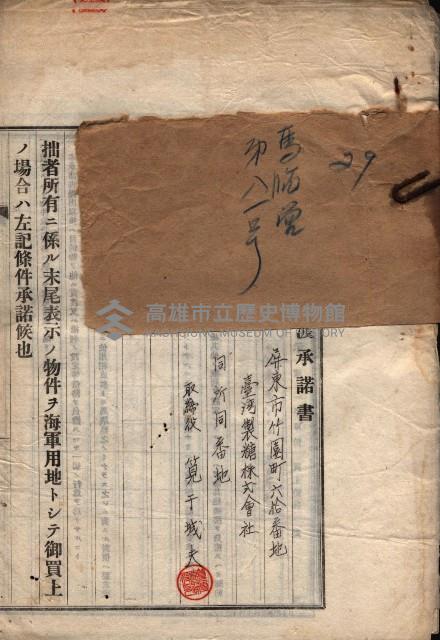 29
馬臨曾
第八一号
渡承諾書
屏東市竹園町六拾番地
臺灣製糖株式會社
同所同番地
取締役 筧干城夫
拙者所有ニ係ル末尾表示ノ物件ヲ海軍用地トシテ御買上
ノ場合ハ左記條件承諾候也
高雄市立歷史博物館
KAOHSIUNG MUSEUM OF HISTORY